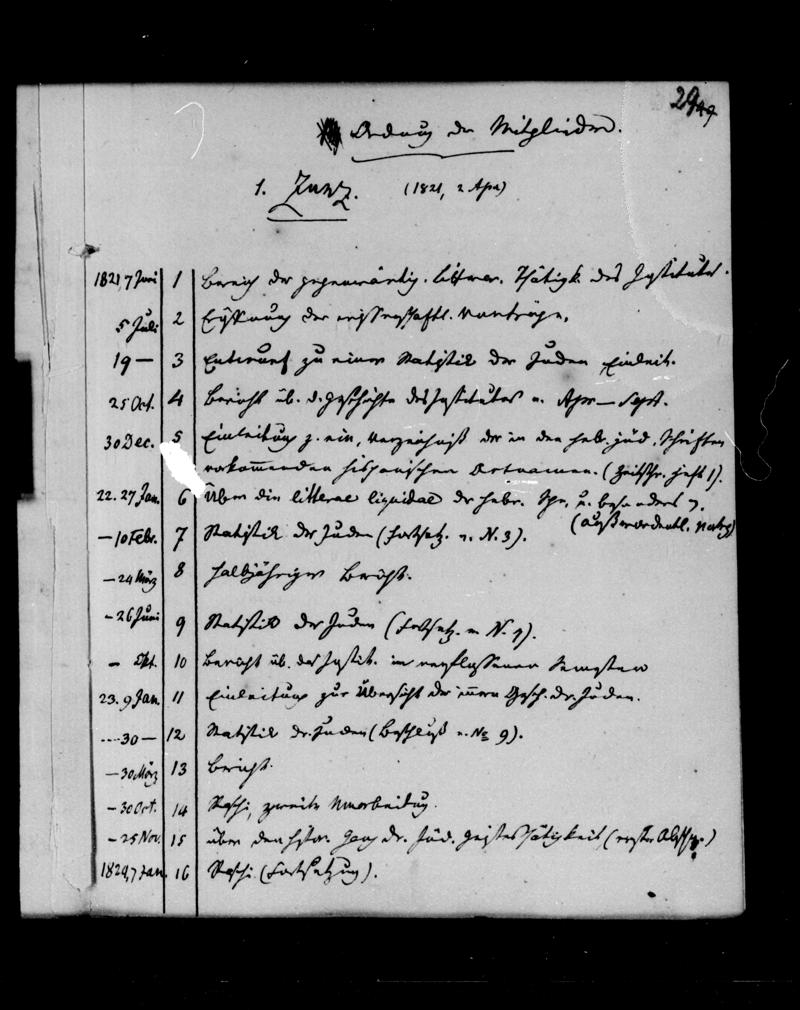 29
49
Ordnung der Mitglieder.
1. Zunz. (1821, 2 Apr)
1821, 7 Juni 1 Bereich der gegenwärtig. litterar. Thätigk. des Instituts.
5 Juli 2 Eröffnung der wissenschaftl. Vorträge.
19 — 3 Entwurf zu einer Statistik der Juden Einleit.
25 Oct. 4 Bericht üb. d. Geschichte des Institutes v. Apr — Sept.
30 Dec. 5 Einleitung z. ein. Verzeichniß der in den hebr. jüd. Schriften
vorkommenden hispanischen Ortnamen. (Zeitschr. Heft 1).
22. 27 Jan. 6 Über die litterae liquidae der hebr. Spr. u. besonders ל.
(außerordentl.
— 10 Febr. 7 Statistik der Juden (Fortsetz. v. N. 3).
— 24 März 8 Halbjähriger Bericht.
— 26 Juni 9 Statistik der Juden (Fortsetz. v. N. 7).
— Okt. 10 Bericht üb. das Instit. im verflossenen Semester
23. 9 Jan. 11 Einleitung zur Übersicht der innern Gesch. der Juden.
— 30 — 12 Statistik der Juden (Beschluß v. No 9).
— 30 März 13 Bericht.
— 30 Oct. 14 Raschi, zweite Umarbeitung.
— 25 Nov. 15 über den histor. Gang der Jüd. Geistesthätigkeit (erster Abschn.)
1824, 7 Jan. 16 Raschi (Fortsetzung).